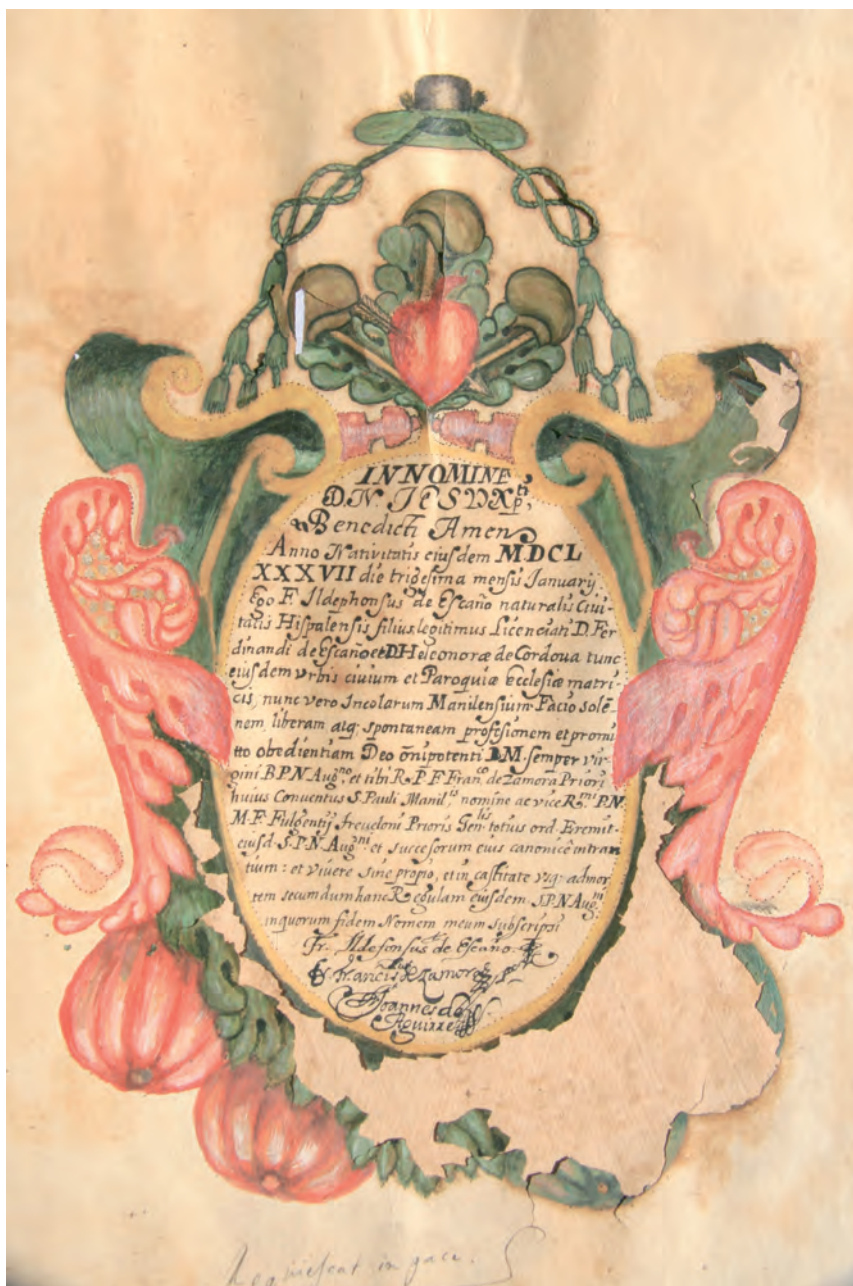 IN NOMINE
D.N. JESU Xpti,
Benedicti Amen
Anno Nativitatis eiusdem MDCL
XXXVII die trigesima mensis Januarij
Ego F. Ildephonsus de Escaño naturalis Ciui-
tatis Hispalensis filius legitimus Licenciati D. Fer
dinandi de Escaño et D. Heleonoræ de Cordoua tunc
eiusdem vrbis ciuium et Paroquiæ ecclesiæ matri-
cis, nunc vero Incolarum Manilensium. Facio solē-
nem, liberam atq; spontaneam profesionem et promi
tto obedientiam Deo ōnipotenti B.M. semper vir-
gini B.P.N Augno. et tibi R. P. F. Franco. de Zamora Priori
huius Conuentus S. Pauli Manil.is nomine ac vice Rmi. P.N.
M. F. Fulgentij Prioris Genlis. totius ord. Eremit-
eiusd. S.P.N. Augni. et succesorum eius canonicè intran
tium: et vivere sine propio, et in castitate vsq; ad mor
tem secumdum hanc Regulam eiusdem S.P.N Augni.
in quorum fidem Nomem meum subscripsi
Fr. Ildefonsus de Escaño.
F. Francisco de Zamora
Joannes de
Aguirre
Requiescat in pace.